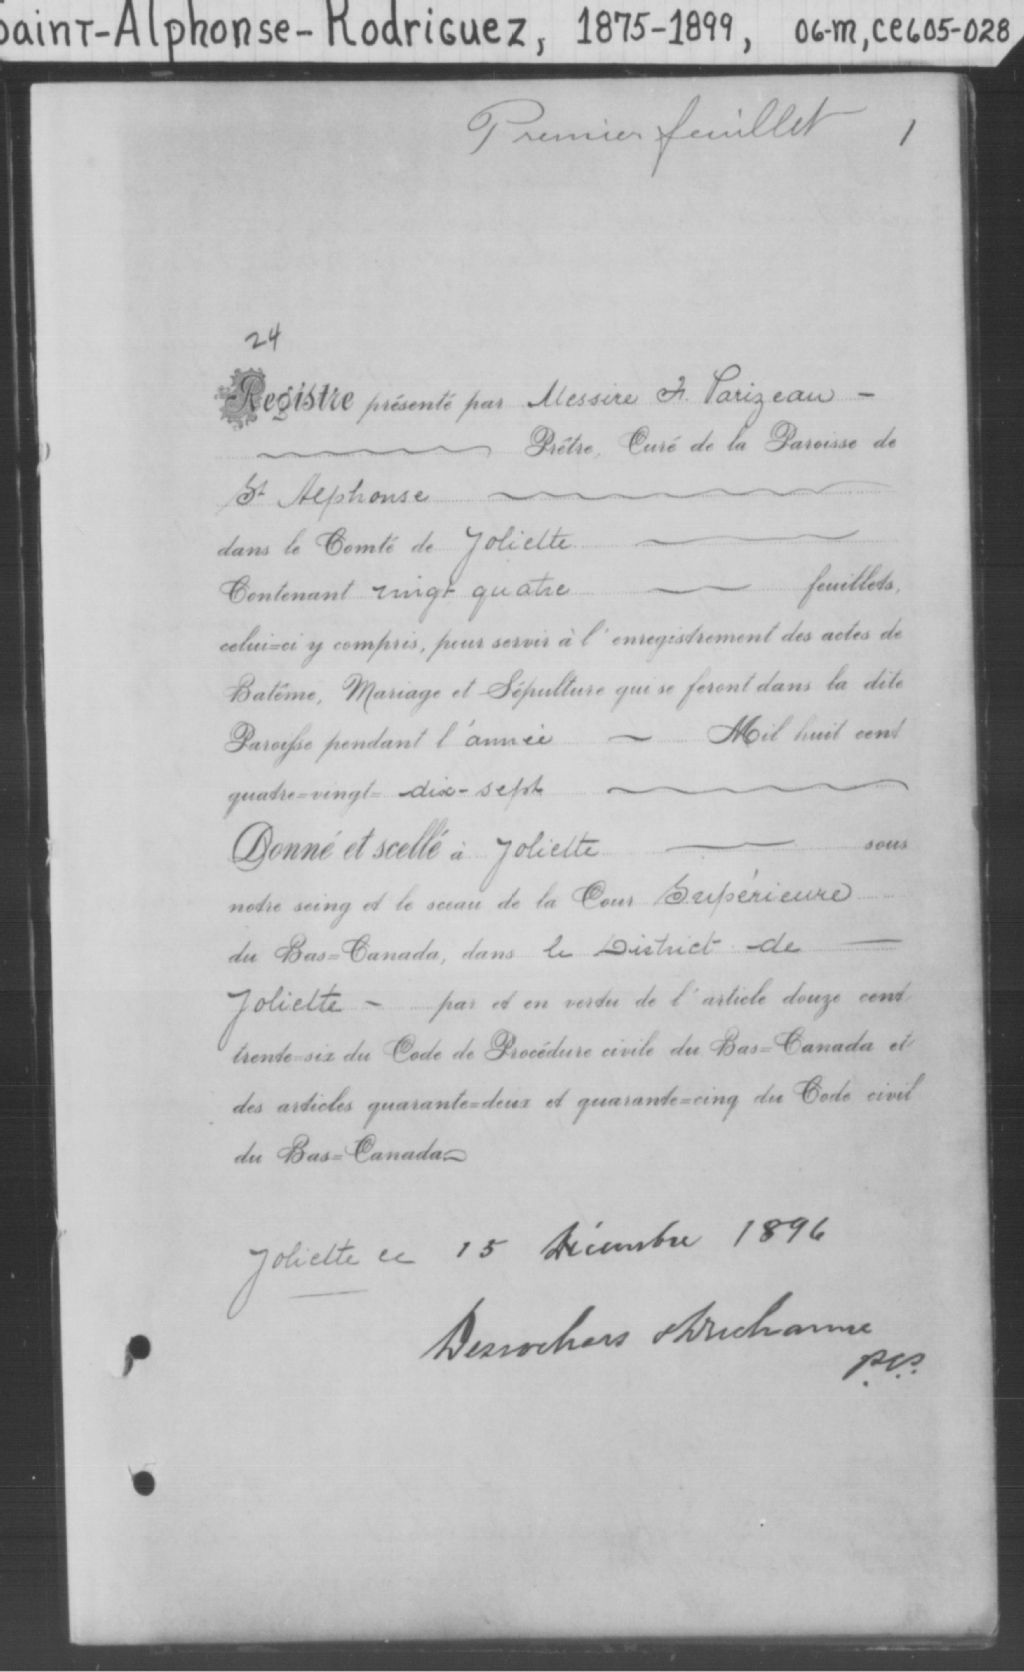 Saint-Alphonse-Rodriguez, 1875-1899, 06-M, CE605-028
Premier feuillet 1
24
Registre présenté par Messire Parizeau -
Prêtre, Curé de la Paroisse de
St Alphonse
dans le Comté de Joliette
Contenant vingt quatre feuillets,
celui=ci y compris, pour servir à l'enregistrement des actes de
Batême, Mariage et Sépulture qui se feront dans la dite
Paroisse pendant l'année - Mil huit cent
quatre=vingt= dix-sept
Donné et scellé à Joliette sous
notre seing et le sceau de la Cour Supérieure
du Bas=Canada, dans le District de
Joliette - par et en vertu de l'article douze cent
trente=six du Code de Procédure civile du Bas=Canada et
des articles quarante=deux et quarante=cinq du Code civil
du Bas=Canada
Joliette ce 15 Décembre 1896
Desrochers